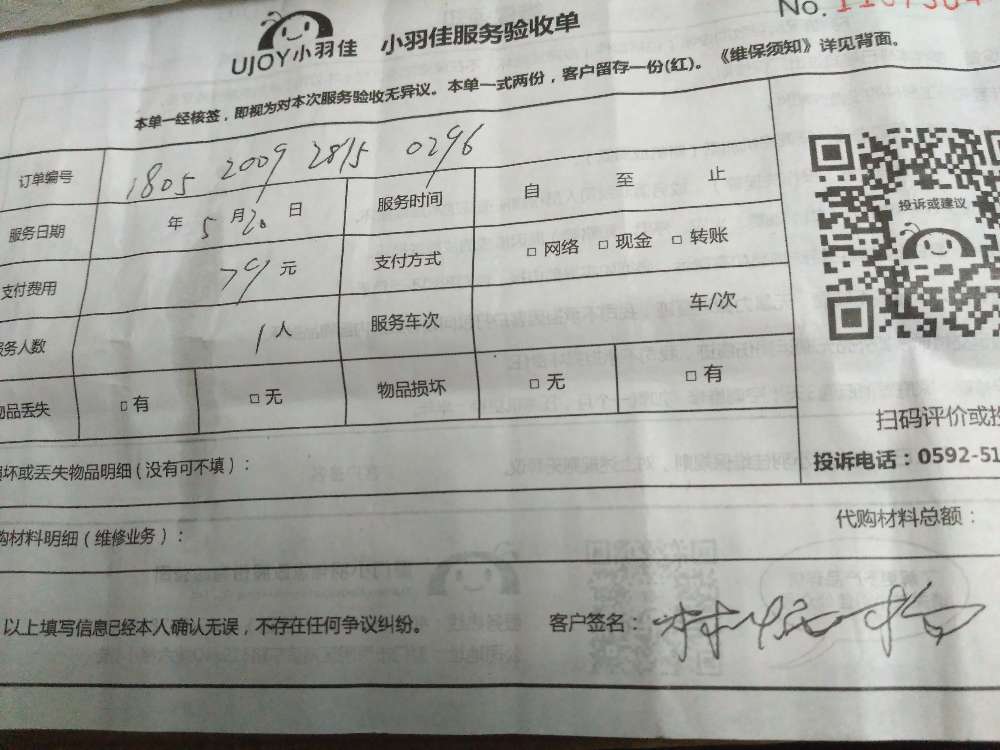 UJOY小羽佳 小羽佳服务验收单
No.
本单一经核签，即视为对本次服务验收无异议。本单一式两份，客户留存一份(红)。《维保须知》详见背面。
订单编号 1805 2009 2815 0296
服务日期 年 5 月 20 日 服务时间 自 至 止
支付费用 79 元 支付方式 □ 网络 □ 现金 □ 转账
务人数 1 人 服务车次 车/次
物品丢失 □ 有 □ 无 物品损坏 □ 无 □ 有
投诉或建议
扫码评价或
投诉电话：0592-51
坏或丢失物品明细（没有可不填）：
购材料明细（维修业务）： 代购材料总额：
以上填写信息已经本人确认无误，不存在任何争议纠纷。 客户签名：